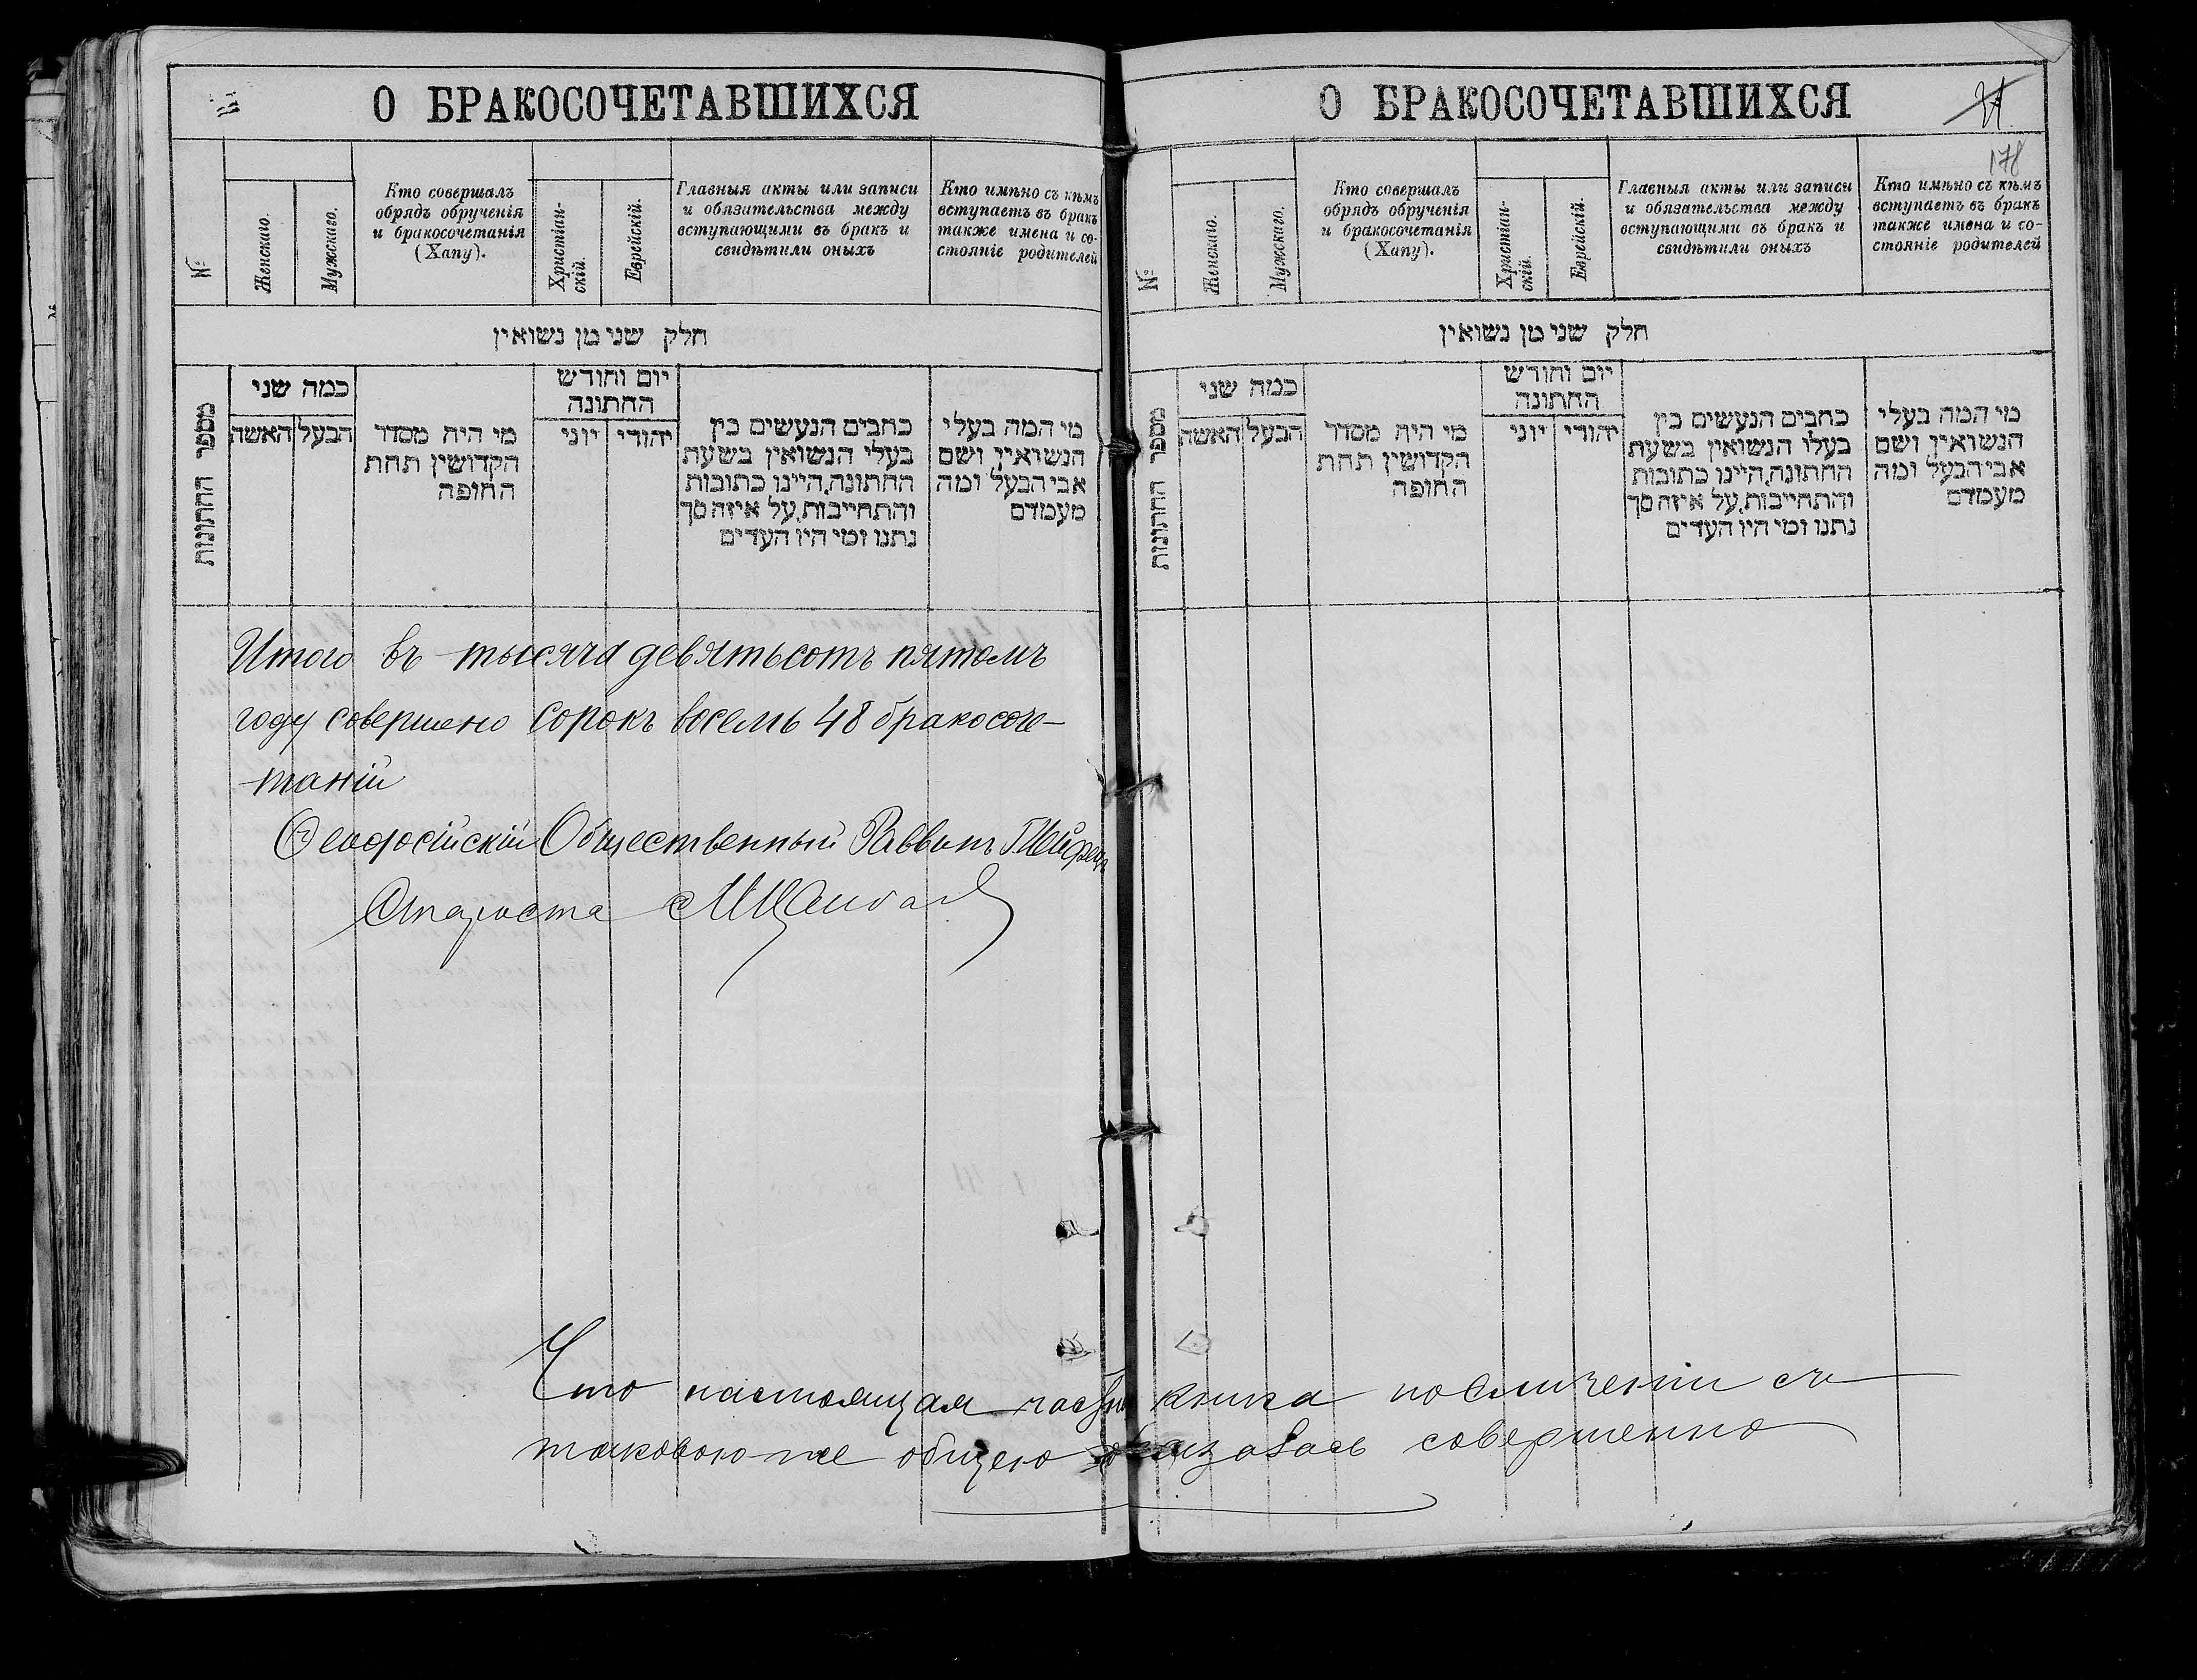 О БРАКОСОЧЕТАВШИХСЯ
№
Женскаго.
Мужскаго.
Кто совершалъ
обрядъ обрученія
и бракосочетанія
(Хапу).
Христіан-
скій.
Еврейскій.
Главныя акты или записи
и обязательства между
вступающими въ бракъ и
свидѣтили оныхъ
Кто имѣно съ кѣмъ
вступаетъ въ бракъ
также имена и со-
стояніе родителей
חלק שני מן נשואין
מספר החתונות
כמה שני
האשה
הבעל
מי היה מסדר
הקדושין תחת
החופה
יום וחודש
החתונה
יוני
יהודי
כתבים הנעשים בין
בעלי הנשואין בשעת
החתונה, היינו כתובות
והתחייבות, על איזה סך
נתנו ומי היו העדים
מי המה בעלי
הנשואין ושם
אבי הבעל ומה
מעמדם
Итого въ тысяча девятьсотъ пятомъ
году совершено сорокъ восемь 48 бракосоче-
таній
Ѳеодосійскій Общественный Раввинъ
Староста
О БРАКОСОЧЕТАВШИХСЯ
178
№
Женскаго.
Мужскаго.
Кто совершалъ
обрядъ обрученія
и бракосочетанія
(Хапу).
Христіан-
скій.
Еврейскій.
Главныя акты или записи
и обязательства между
вступающими въ бракъ и
свидѣтили оныхъ
Кто имѣно съ кѣмъ
вступаетъ въ бракъ
также имена и со-
стояніе родителей
חלק שני מן נשואין
מספר החתונות
כמה שני
האשה
הבעל
מי היה מסדר
הקדושין תחת
החופה
יום וחודש
החתונה
יוני
יהודי
כתבים הנעשים בין
בעלו הנשואין בשעת
החתונה, היינו כתובות
והתחייבות, על איזה סך
נתנו ומי היו העדים
מי המה בעלי
הנשואין ושם
אבי הבעל ומה
מעמדם
Что настоящая книга по сличеніи съ
таковою-же общею оказалась совершенно